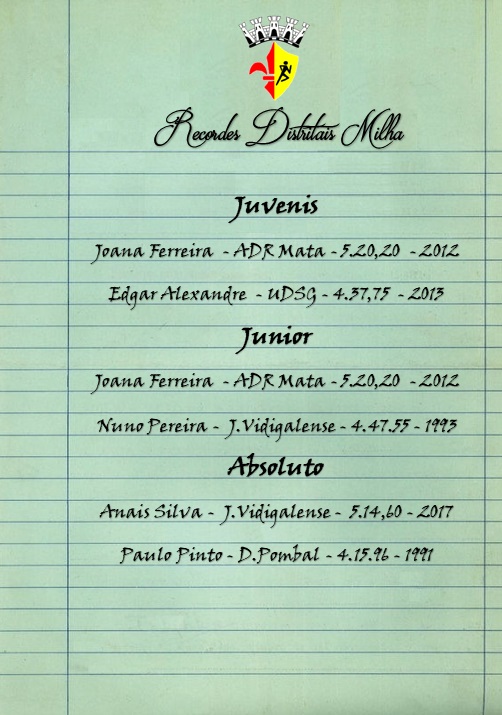 Recordes Distritais Milha
Juvenis
Joana Ferreira - ADR Mata - 5.20,20 - 2012
Edgar Alexandre - UDSG - 4.37,75 - 2013
Junior
Joana Ferreira - ADR Mata - 5.20,20 - 2012
Nuno Pereira - J.Vidigalense - 4.47.55 - 1993
Absoluto
Anais Silva - J.Vidigalense - 5.14,60 - 2017
Paulo Pinto - D.Pombal - 4.15.96 - 1991